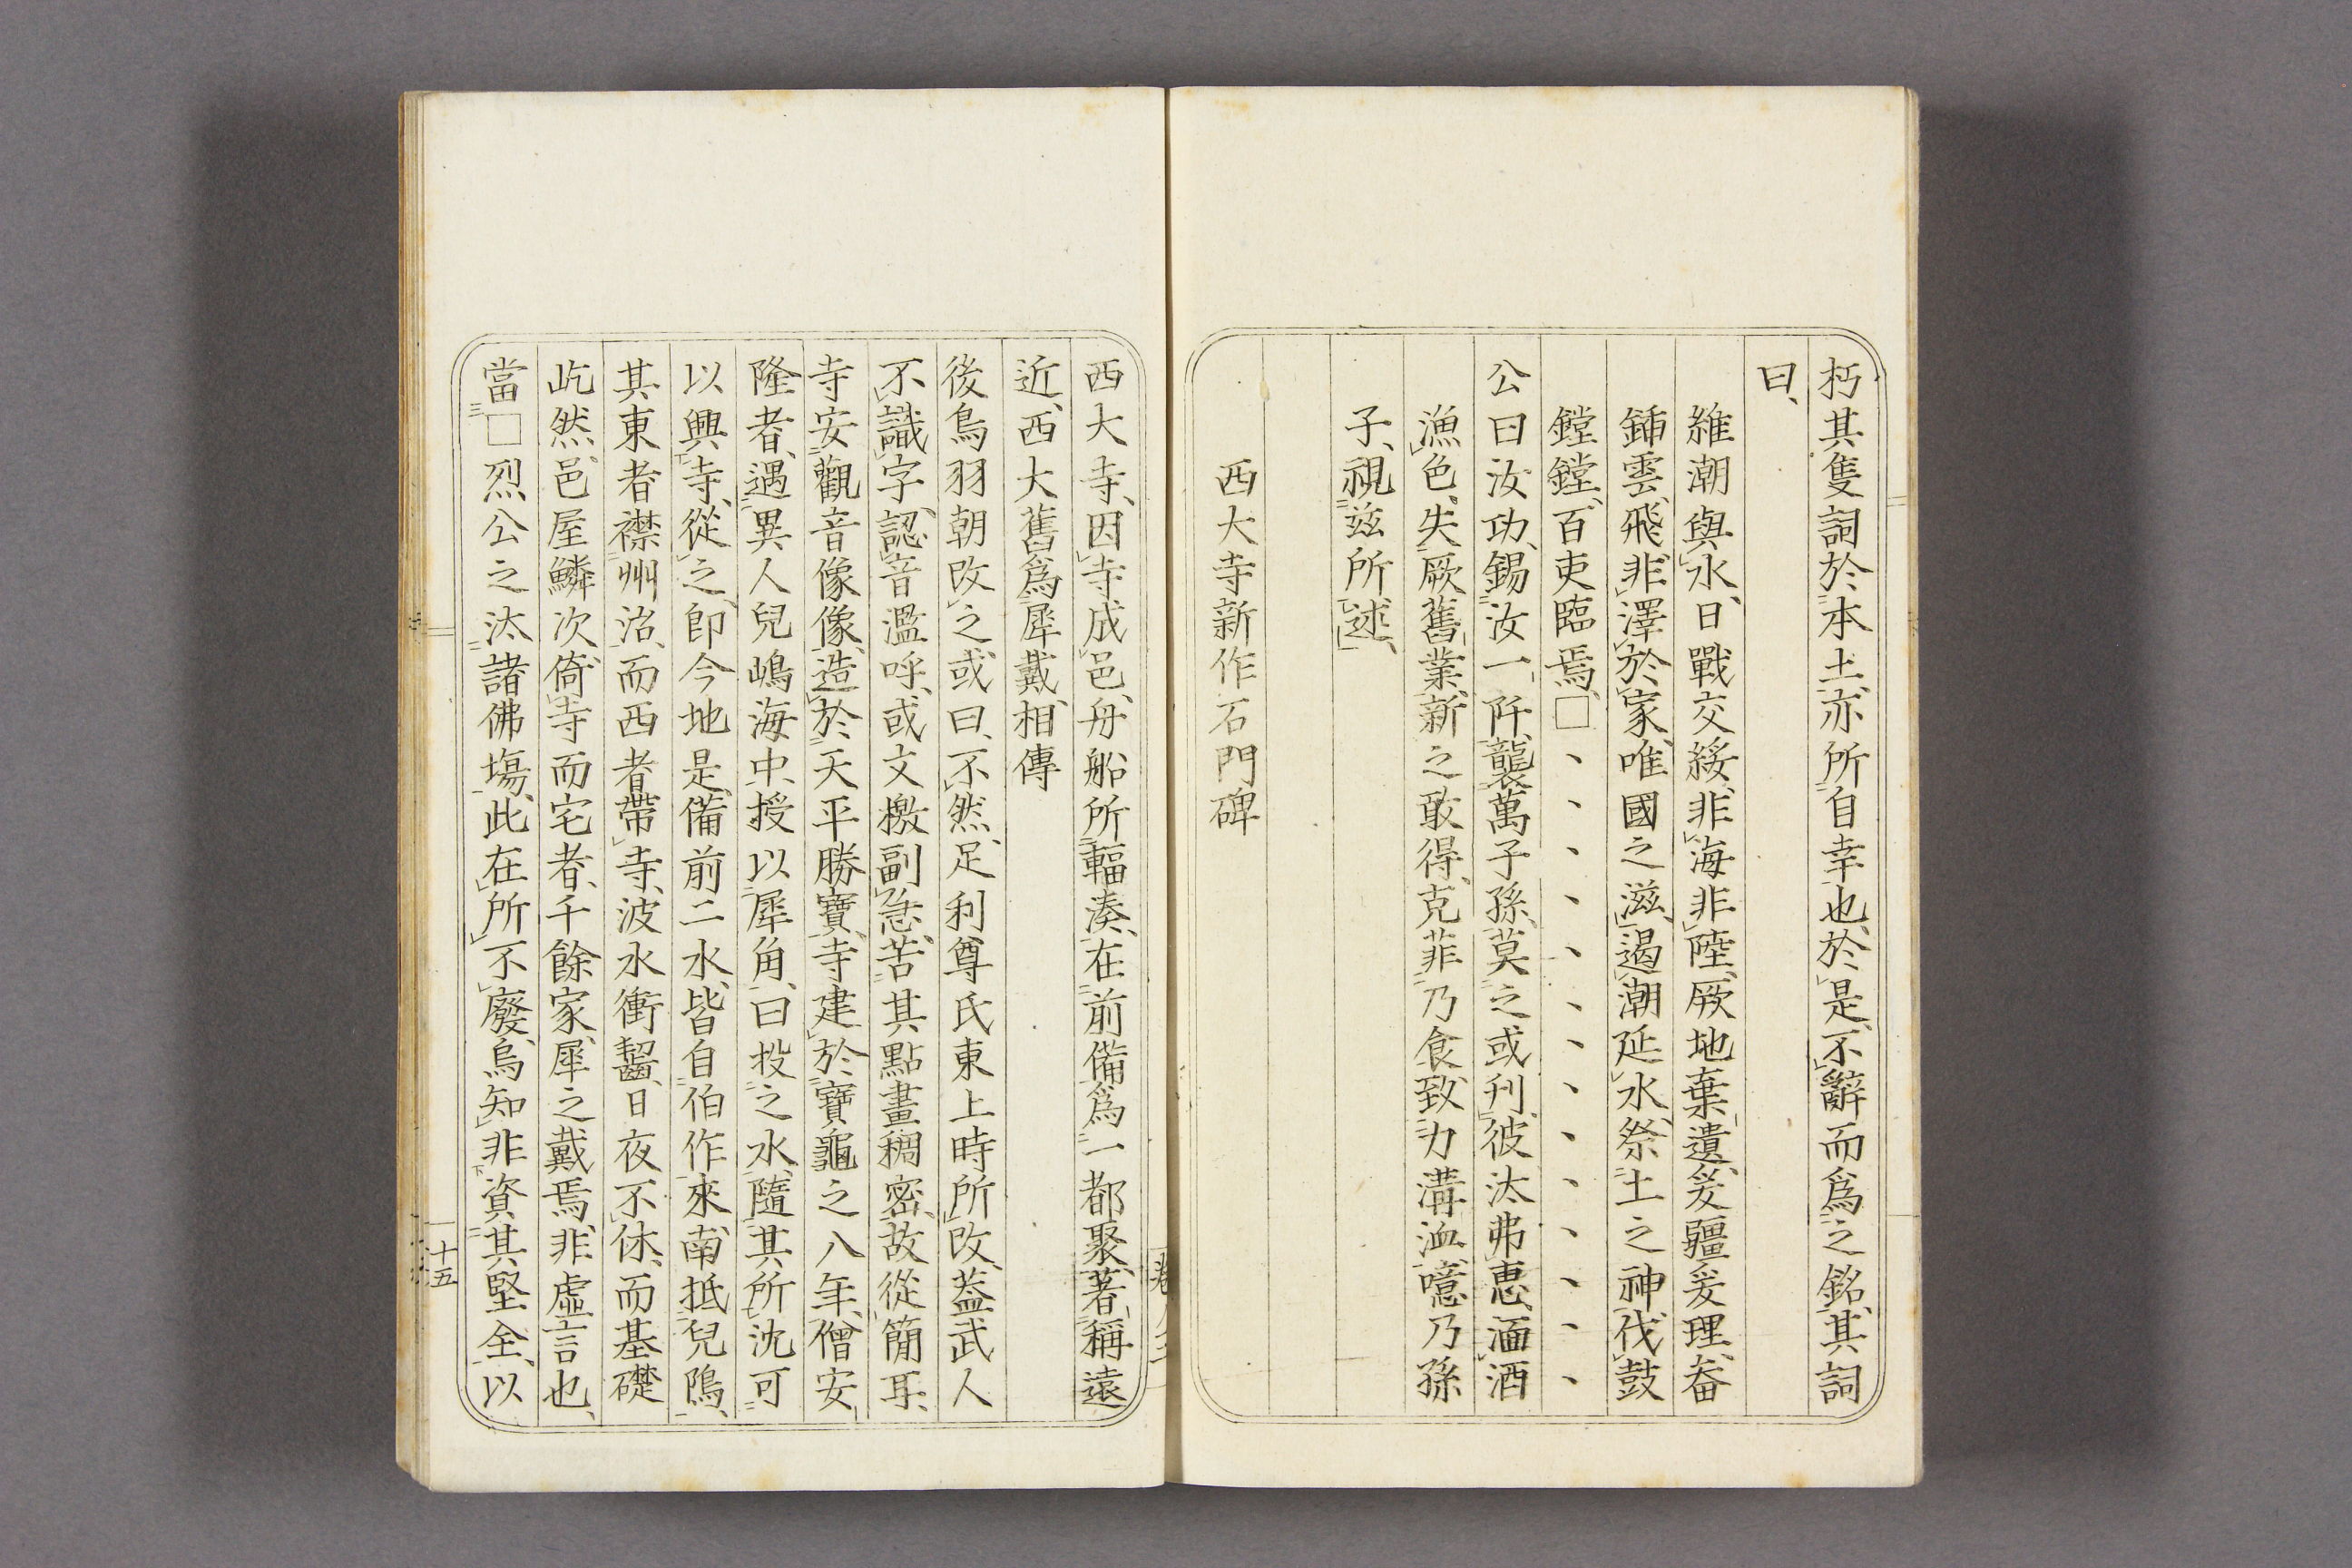 朽其隻詞於本土、亦所自幸也、於是不辭而爲之銘、其詞
曰、
維潮與水、日戰交綏、非海非陸、厥地棄遺、爰疆爰理、畚
鍤雲飛、非澤於家、唯國之滋、遏潮延水、祭土之神、伐鼓
鏜鏜、百吏臨焉、□、、、、、、、、、、、、、、
公曰汝功、錫汝一阡、襲萬子孫、莫之或刋、彼汰弗惠、湎酒
漁色、失厥舊業、新之敢得、克菲乃食、致力溝洫、噫乃孫
子、視茲所述、
西大寺新作石門碑
西大寺、因寺成邑、舟船所輻湊、在前備爲一都聚、著稱遠
近、西大舊爲犀戴、相傳
後鳥羽朝改之、或曰、不然、足利尊氏東上時所改、蓋武人
不識字、認音濫呼、或文檄副急、苦其點畫稠密、故從簡耳、
寺安觀音像、像造於天平勝寶、寺建於寶龜之八年、僧安
隆者、遇異人兒嶋海中、授以犀角、曰投之水、隨其所沈可
以興寺、從之、即今地是、備前二水、皆自伯作來、南抵兒隝、
其東者襟州治、而西者帶寺、波水衝齧、日夜不休、而基礎
屹然、邑屋鱗次、倚寺而宅者、千餘家、犀之戴焉、非虛言也、
當□烈公之汰諸佛塲、此在所不廢、烏知非資其堅全、以
十五